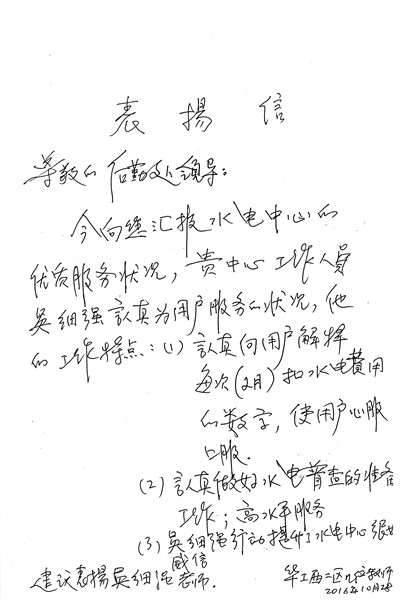 表揚信
尊敬的后勤处领导:
今向您汇报水电中心的
优质服务状况,贵中心工作人员
吳细强認真为用户服务的状况,他
的工作特点:(1)認真向用户解释
每次(2月)扣水电費用
的数字,使用户心服
口服.
(2)認真做好水电普查的准备
工作;高水平服务
(3)吳细强行动提升了水电中心
威信
建议表揚吳细强老师.
华工西二区 教师
2016年10月28